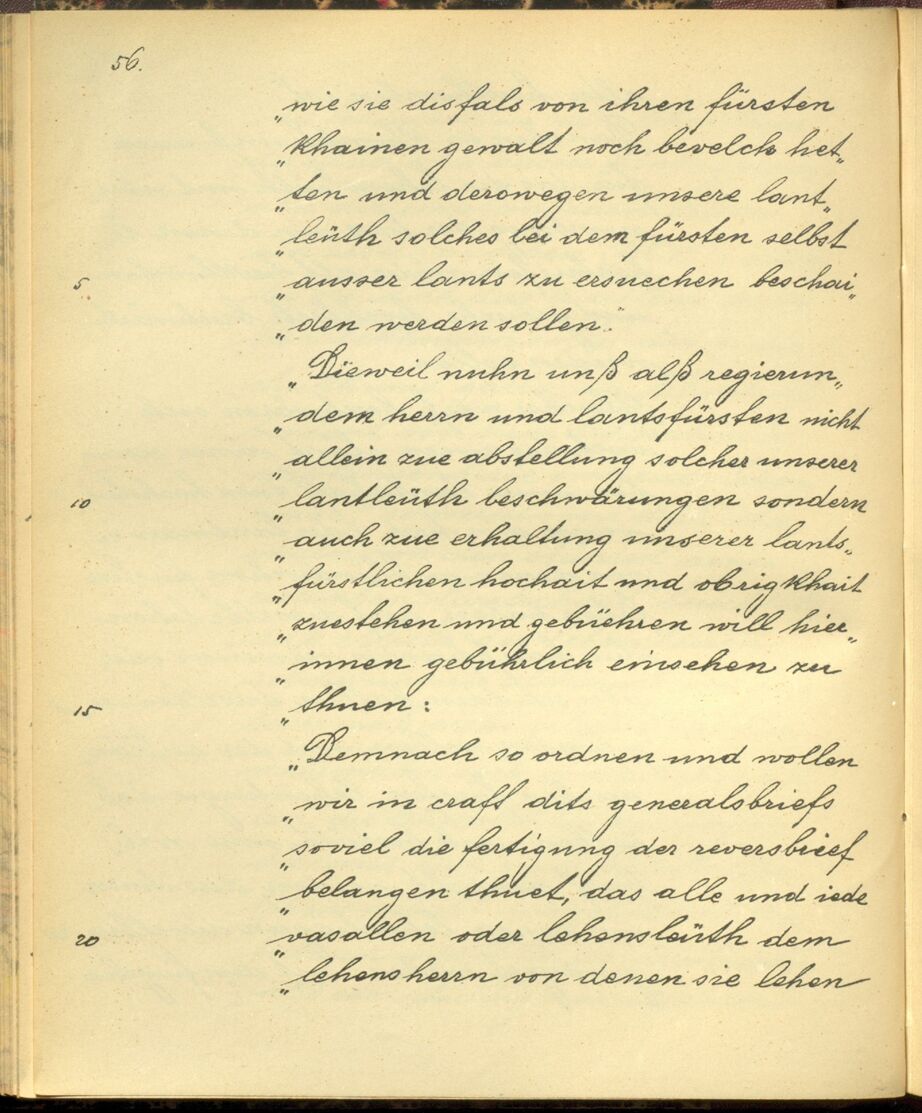 56.
„wie sie disfals von ihren fürsten
„khainen gewalt noch bevelch het„
„ten und derowegen unsere lant„
„leüth solches bei dem fürsten selbst
5. „ausser lants zu ersuechen beschai„
„den werden sollen."
„Dieweil nuhn unß alß regierun„
„dem herrn und lantsfürsten nicht
„allein zue abstellung solcher unserer
10 „lantleüth beschwärungen sondern
„auch zue erhaltung unserer lants„
„fürstlichen hochait und obrigkhait
„zuestehen und gebüehren will hier„
„innen gebührlich einsehen zu
15 „thuen:
„Demnach so ordnen und wollen
„wir in craft dits generalsbriefs
„soviel die fertigung der reversbrief
„belangen thuet, das alle und iede
20 „vasallen oder lehensleüth dem
„lehensherrn von denen sie lehen